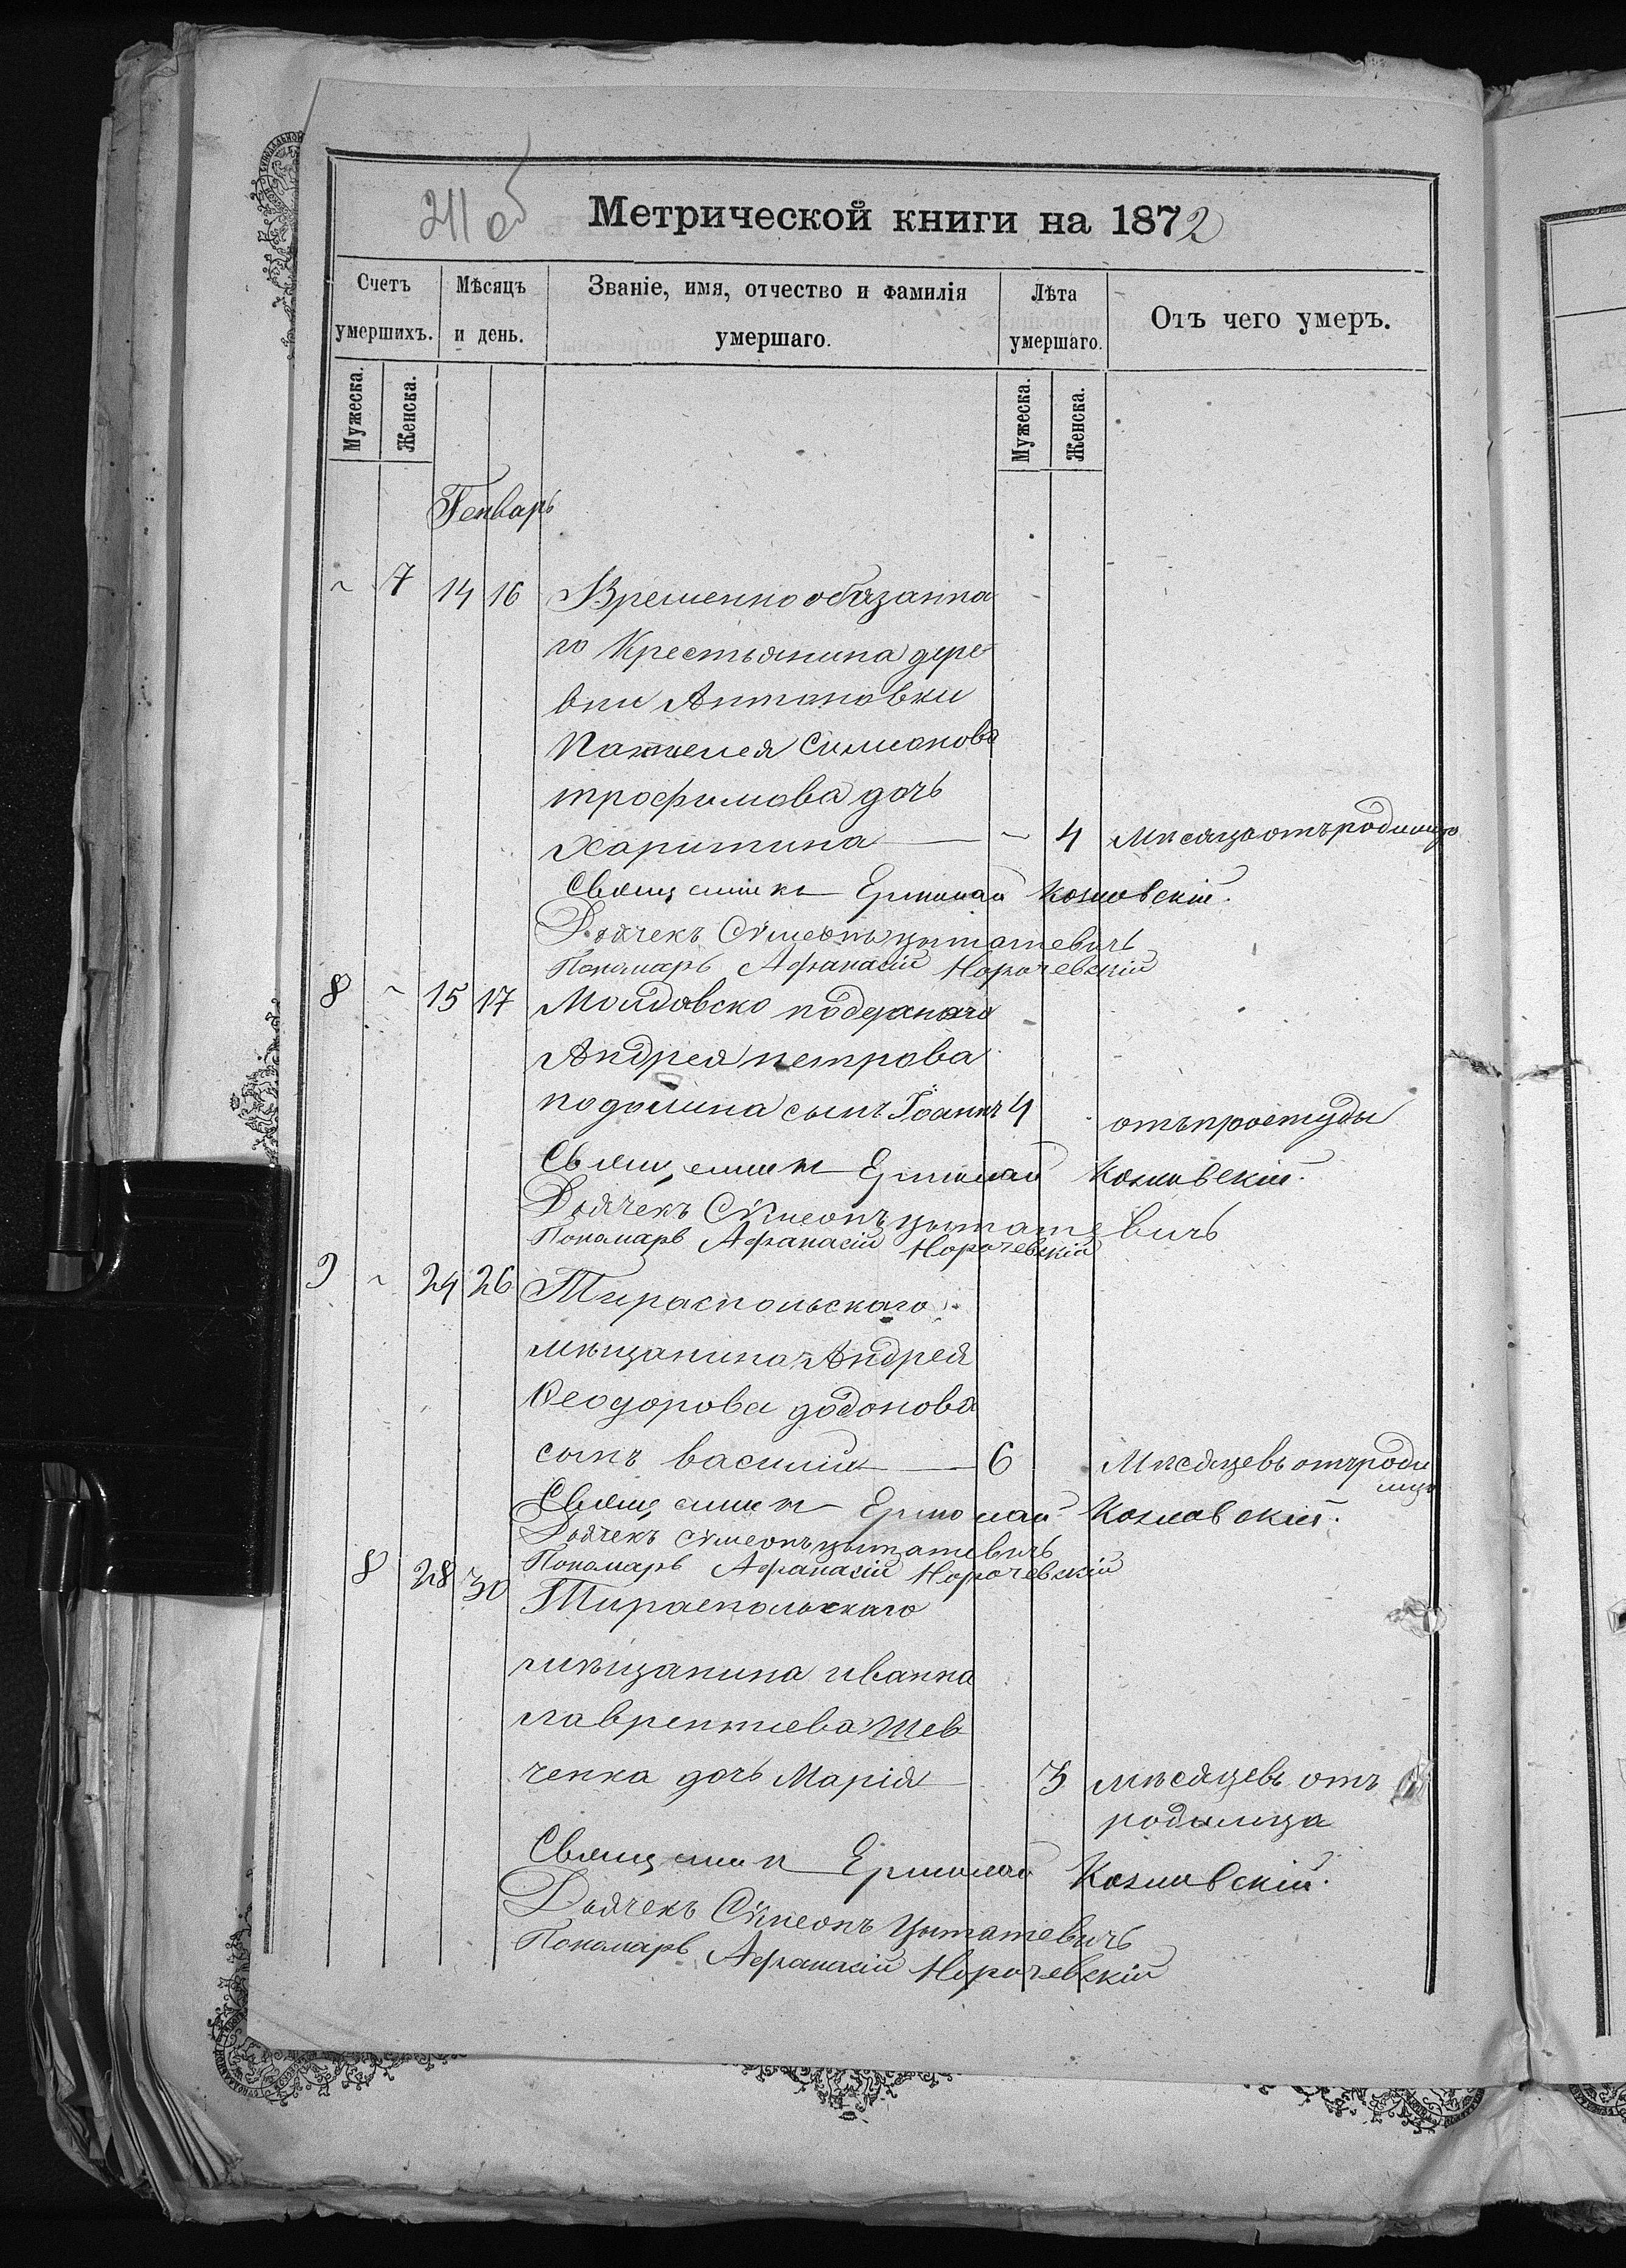 211 об
Метрической книги на 1872
Счетъ умершихъ.
Мѣсяцъ и день.
Званіе, имя, отчество и фамилія умершаго.
Лѣта умершаго.
Отъ чего умеръ.
Мужеска. Женска. Мужеска. Женска.
Генварь
~ 7 14 16 Временнообязанна
го Крестьянина дере-
вни Антоновки
Пантелея Симионова
трофимова дочь
Харитина — ~ 4 Мѣсяца отъ родимца
Священникъ Ермолай Козловскій.
Дьячекъ Сѵмеонъ Цытатевичъ
Пономарь Афанасій Норочевскій
8 ~ 15 17 Молдовско подданаго
Андрея петрова
подолина сынъ Іоаннъ 4 отъ простуды
Священникъ Ермолай Козловскій.
Дьячекъ Сѵмеонъ Цытатевичъ
Пономарь Афанасій Норочевскій
9 ~ 24 26 Тираспольскаго
мѣщанина Андрея
Ѳеодорова додонова
сынъ василий — 6 Мѣсяцевъ отъ роди
мца
Священникъ Ермолай Козловскій.
Дьячекъ Сѵмеонъ Цытатевичъ
Пономарь Афанасій Норочевскій
8 28 30 Тираспольскаго
мѣщанина иванна
лаврентиева Шев
ченка дочь Марія — 3 мѣсяцевъ отъ
родимца
Священникъ Ермолай Козловскій.
Дьячекъ Сѵмеонъ Цытатевичъ
Пономарь Афанасій Норочевскій